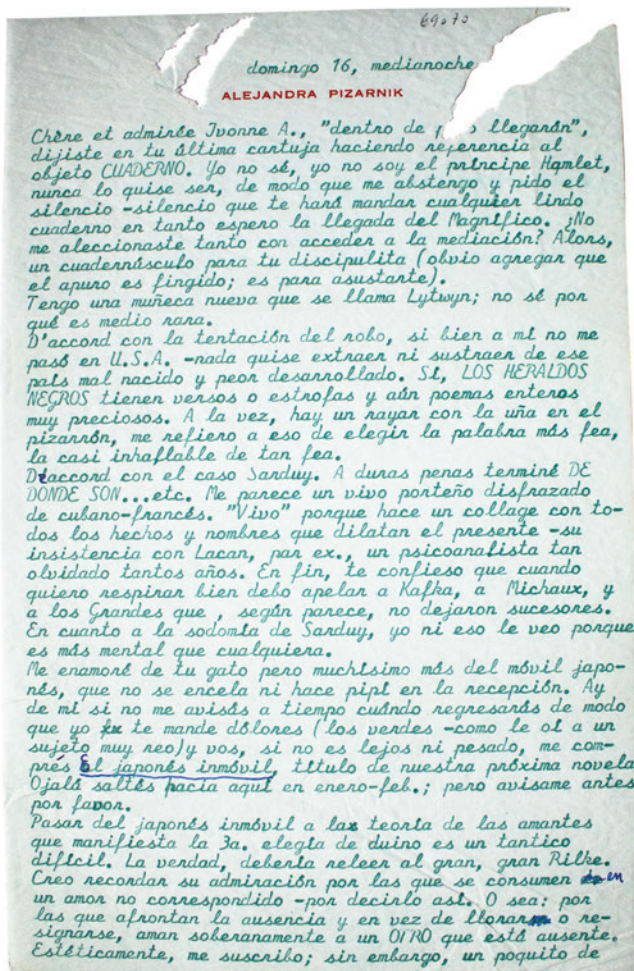 69-70
domingo 16, medianoche
ALEJANDRA PIZARNIK
Chère et admirée Ivonne A., "dentro de llegarán",
dijiste en tu última cartuja haciendo referencia al
objeto CUADERNO. Yo no sé, yo no soy el príncipe Hamlet,
nunca lo quise ser, de modo que me abstengo y pido el
silencio -silencio que te hará mandar cualquier lindo
cuaderno en tanto espero la llegada del Magnífico. ¿No
me aleccionaste tanto con acceder a la mediación? Alors,
un cuadernúsculo para tu discipulita (obvio agregar que
el apuro es fingido; es para asustarte).
Tengo una muñeca nueva que se llama Lytwyn; no sé por
qué es medio rara.
D'accord con la tentación del robo, si bien a mí no me
pasó en U.S.A. -nada quise extraer ni sustraer de ese
país mal nacido y peor desarrollado. Sí, LOS HERALDOS
NEGROS tienen versos o estrofas y aún poemas enteros
muy preciosos. A la vez, hay un rayar con la uña en el
pizarrón, me refiero a eso de elegir la palabra más fea,
la casi inhaflable de tan fea.
D'accord con el caso Sarduy. A duras penas terminé DE
DONDE SON...etc. Me parece un vivo porteño disfrazado
de cubano-francés. "Vivo" porque hace un collage con to-
dos los hechos y nombres que dilatan el presente -su
insistencia con Lacan, par ex., un psicoanalista tan
olvidado tantos años. En fin, te confieso que cuando
quiero respirar bien debo apelar a Kafka, a Michaux, y
a los Grandes que , según parece, no dejaron sucesores.
En cuanto a la sodomía de Sarduy, yo ni eso le veo porque
es más mental que cualquiera.
Me enamoré de tu gato pero muchísimo más del móvil japo-
nés, que no se encela ni hace pipí en la recepción. Ay
de mí si no me avisás a tiempo cuándo regresarás de modo
que yo te mande dólares (los verdes -como le oí a un
sujeto muy reo)y vos, si no es lejos ni pesado, me com-
prés El japonés inmóvil, título de nuestra próxima novela
Ojalá saltés hacia aquí en enero-feb.; pero avisame antes
por favor.
Pasar del japonés inmóvil a la teoría de las amantes
que manifiesta la 3a. elegía de duino es un tantico
difícil. La verdad, debería releer al gran, gran Rilke.
Creo recordar su admiración por las que se consumen en
un amor no correspondido -por decirlo así. O sea: por
las que afrontan la ausencia y en vez de llorar o re-
signarse, aman soberanamente a un OTRO que está ausente.
Estéticamente, me suscribo; sin embargo, un poquito de